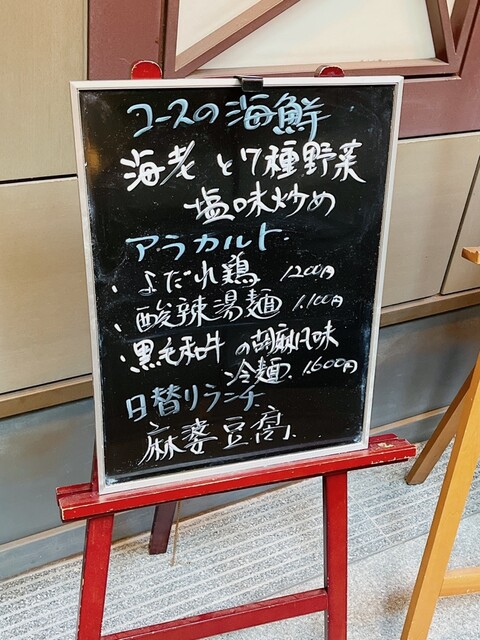 コースの海鮮
海老と7種野菜
塩味炒め
アラカルト.
・よだれ鶏 1200円
・酸辣湯麺 1.100円
・黒毛和牛の胡麻風味
冷麺. 1.600円
日替りランチ
麻婆豆腐.